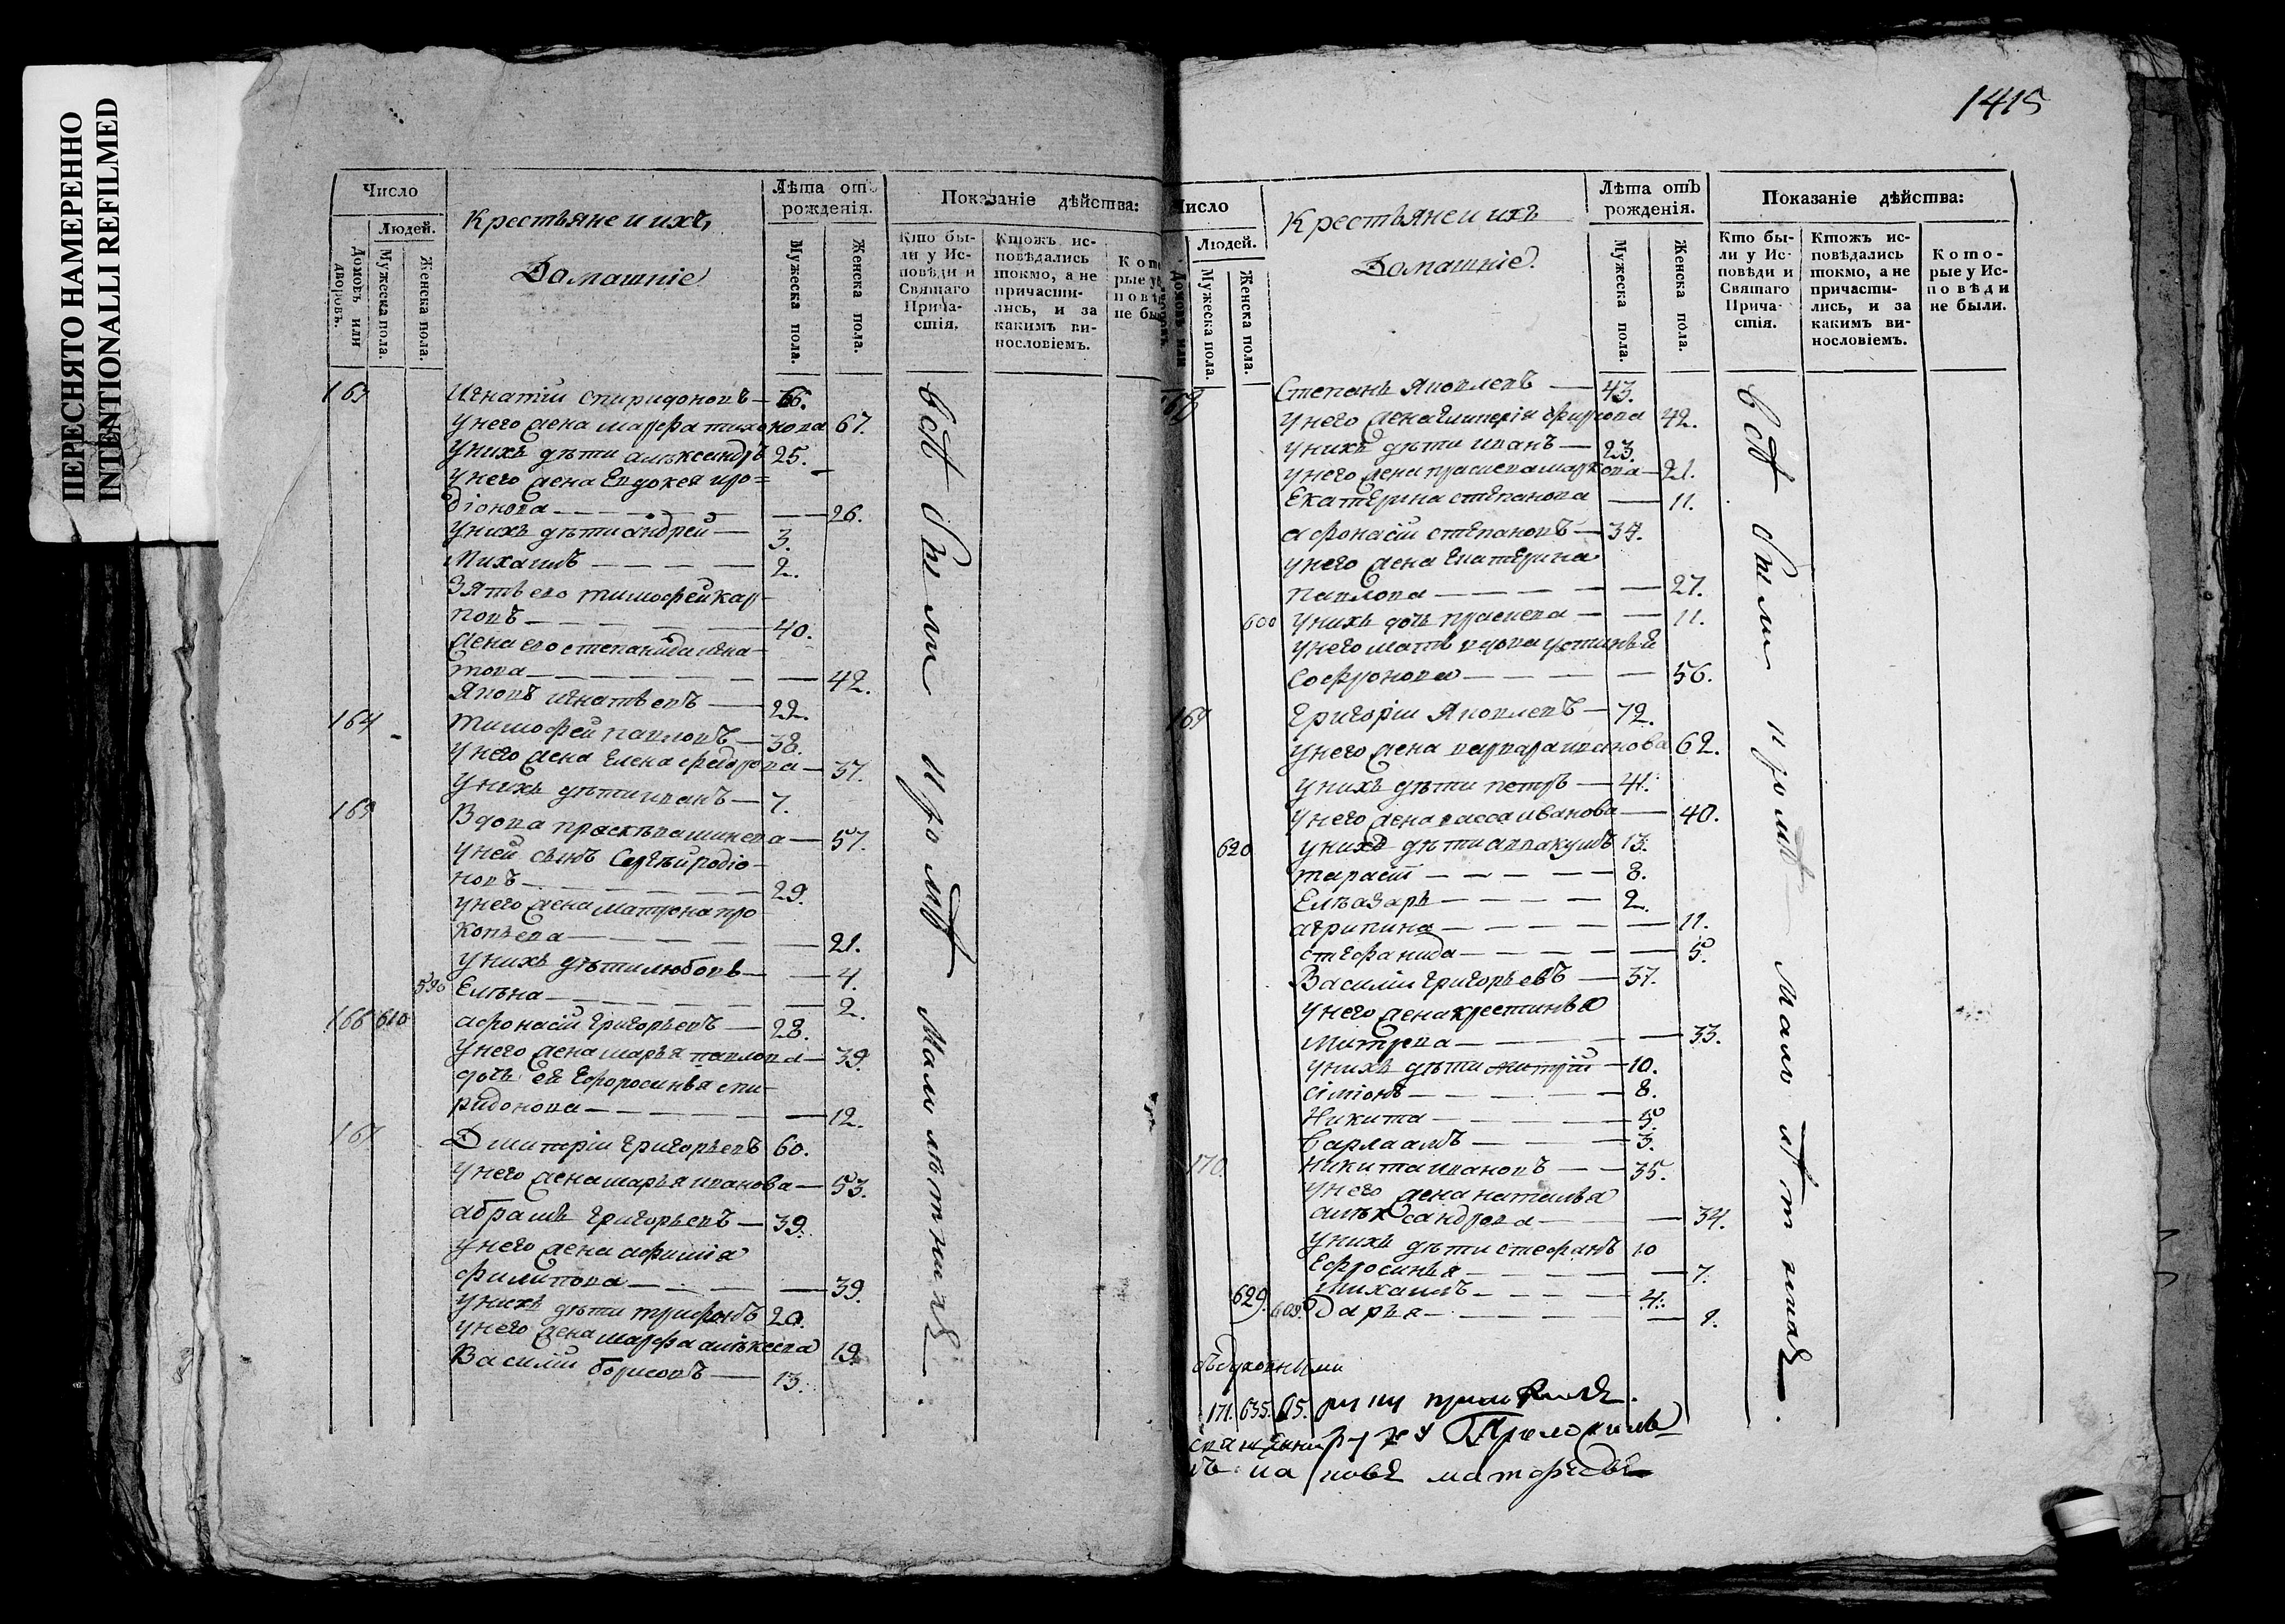 ПЕРЕСНЯТО НАМЕРЕННО
INTENTIONALLI REFILMED
Число
Людей.
Домовъ или дворовъ.
Мужеска пола.
Женска пола.
Крестьяне и ихъ
Домашніе
Лѣта отъ рожденія.
Мужеска пола.
Женска пола.
Показаніе дѣйства:
Кто бы-
ли у Ис-
повѣди и
Святаго
Прича-
стія.
Ктожъ ис-
повѣдались
токмо, а не
причасти-
лись, и за
какимъ ви-
нословіемъ.
163 Игнатій спиридоновъ — 66.
у него жена марфа тихонова 67.
у нихъ дѣти алѣксандръ 25.
у него жена Евдокея иро=
діонова — 26.
у нихъ дѣти андрей — 3.
Михаилъ — 2.
Зять его тимофей кар-
повъ — 40.
жена его степанида игна-
това — 42.
Яковъ игнатьевъ — 22.
164 тимофей павловъ — 38.
у него жена Елена федорова — 37.
у нихъ дѣти иванъ — 7.
165 Вдова праскѣва минева — 57.
у ней сынъ Сергѣй родіо-
новъ — 29.
у него жена матрена про
копьева — 21.
у нихъ дѣти любовь — 4.
590 Елѣна — 2.
166 610 афонасій григорьевъ — 28.
у него жена марья павлова — 39.
дочь ея Ефоросинья спи-
ридонова — 12.
167 Дмитрій григорьевъ 60.
у него жена марья иванова — 53.
абрамъ григорьевъ — 39.
у него жена афимія
филипова — 39.
у нихъ дѣти трифонъ 20.
у него жена марфа алѣксева 19.
Василій борисовъ — 13.
всѣ были кромѣ малолѣтныхъ.
1415
Число
Людей.
Мужеска пола.
Женска пола.
Крестьяне и ихъ
Домашніе.
Лѣта отъ рожденія.
Мужеска пола.
Женска пола.
Показаніе дѣйства:
Кто бы-
ли у Ис-
повѣди и
Святаго
Прича-
стія.
Ктожъ ис-
повѣдались
токмо, а не
причасти-
лись, и за
какимъ ви-
нословіемъ.
Кото-
рые у Ис-
повѣди
не были.
168 Степанъ Яковлевъ — 43.
у него жена 42.
у нихъ дѣти иванъ — 23.
у него жена праскева маркова — 21.
Екатерина степанова — 11.
афонасій степановъ — 34.
у него жена Екатерина
павлова — 27.
600 у нихъ дочь праскева — 11.
у него мать вдова устинья
Софронова — 56.
169 Григорій Яковлевъ — 72.
у него жена варвара иванова 62.
у нихъ дѣти петръ — 41.
у него жена васса иванова — 40.
620 у нихъ дѣти аввакумъ 13.
тарасій — 8.
Елѣазаръ — 2.
агрипина — 11.
стефанида — 5.
Василій григорьевъ — 37.
у него жена крестинья
митрева — 33.
у нихъ дѣти митрій — 10.
сіміонъ — 8.
Никита — 5.
Варлаамъ — 3.
170. никита ивановъ — 35.
у него жена наталья
алѣксандрова — 34.
у нихъ дѣти стефанъ 10
Ефросинья — 7.
629. Михаилъ — 4.
609. Дарья — 1.
всѣ были кромѣ малолѣтныхъ.
съ духовными
171. 635. 615. руку приложилъ.
священникъ